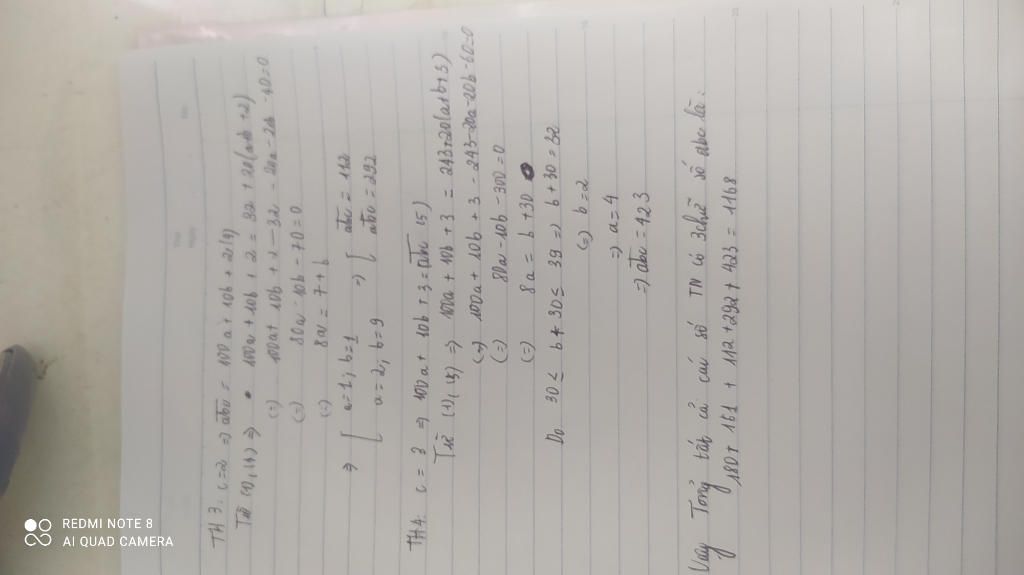 TH3: c=2 => abc = 100a + 10b + 2 (4)
Từ (1), (4) => 100a + 10b + 2 = 32 + 20(a+b+2)
(=) 100a + 10b + 2 - 32 - 20a - 20b - 40=0
(=) 80a - 10b - 70 = 0
(=) 8a = 7 + b
=> [ a=1; b=1 => [ abc = 112
a=2; b=9 abc = 292
TH4: c = 3 => 100a + 10b + 3 = abc (5)
Từ (1), (5) => 100a + 10b + 3 = 243+20(a+b+3)
(=) 100a + 10b + 3 - 243-20a-20b-60=0
(=) 80a - 10b - 300 = 0
(=) 8a = b + 30
Do 30 ≤ b + 30 ≤ 39 => b + 30 = 32
(=) b = 2
=> a = 4
=> abc = 423
Vậy Tổng tất cả các số TN có 3 chữ số abc là:
180 + 161 + 112 + 292 + 423 = 1168
REDMI NOTE 8
AI QUAD CAMERA